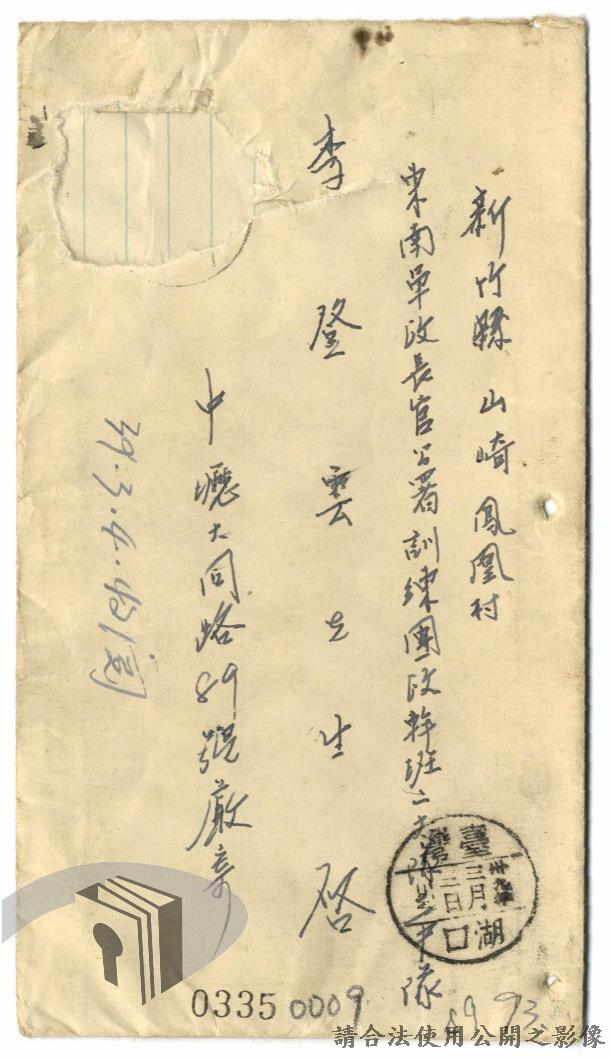 新竹縣山崎鳳凰村
東南軍政長官公署訓練團政幹班二大隊中隊
李登雲先生啓
中壢大同路89號嚴寄
39.3.4.收到
臺灣
卅九年
三月
三日
湖口
0335 0009
89 93
請合法使用公開之影像